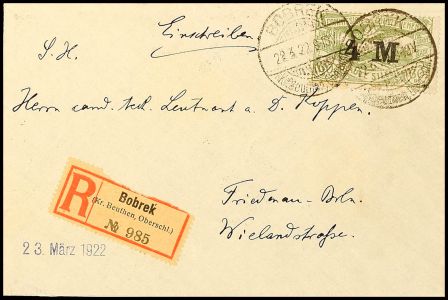 Einschreiben
BOBREK
4 M
S. H.
Herrn cand. tech. Leutnant a. D. Koppen.
R
Bobrek
(Kr. Beuthen, Oberschl.)
№ 985
Friedenau-Bln.
Wielandstraße.
23. März 1922